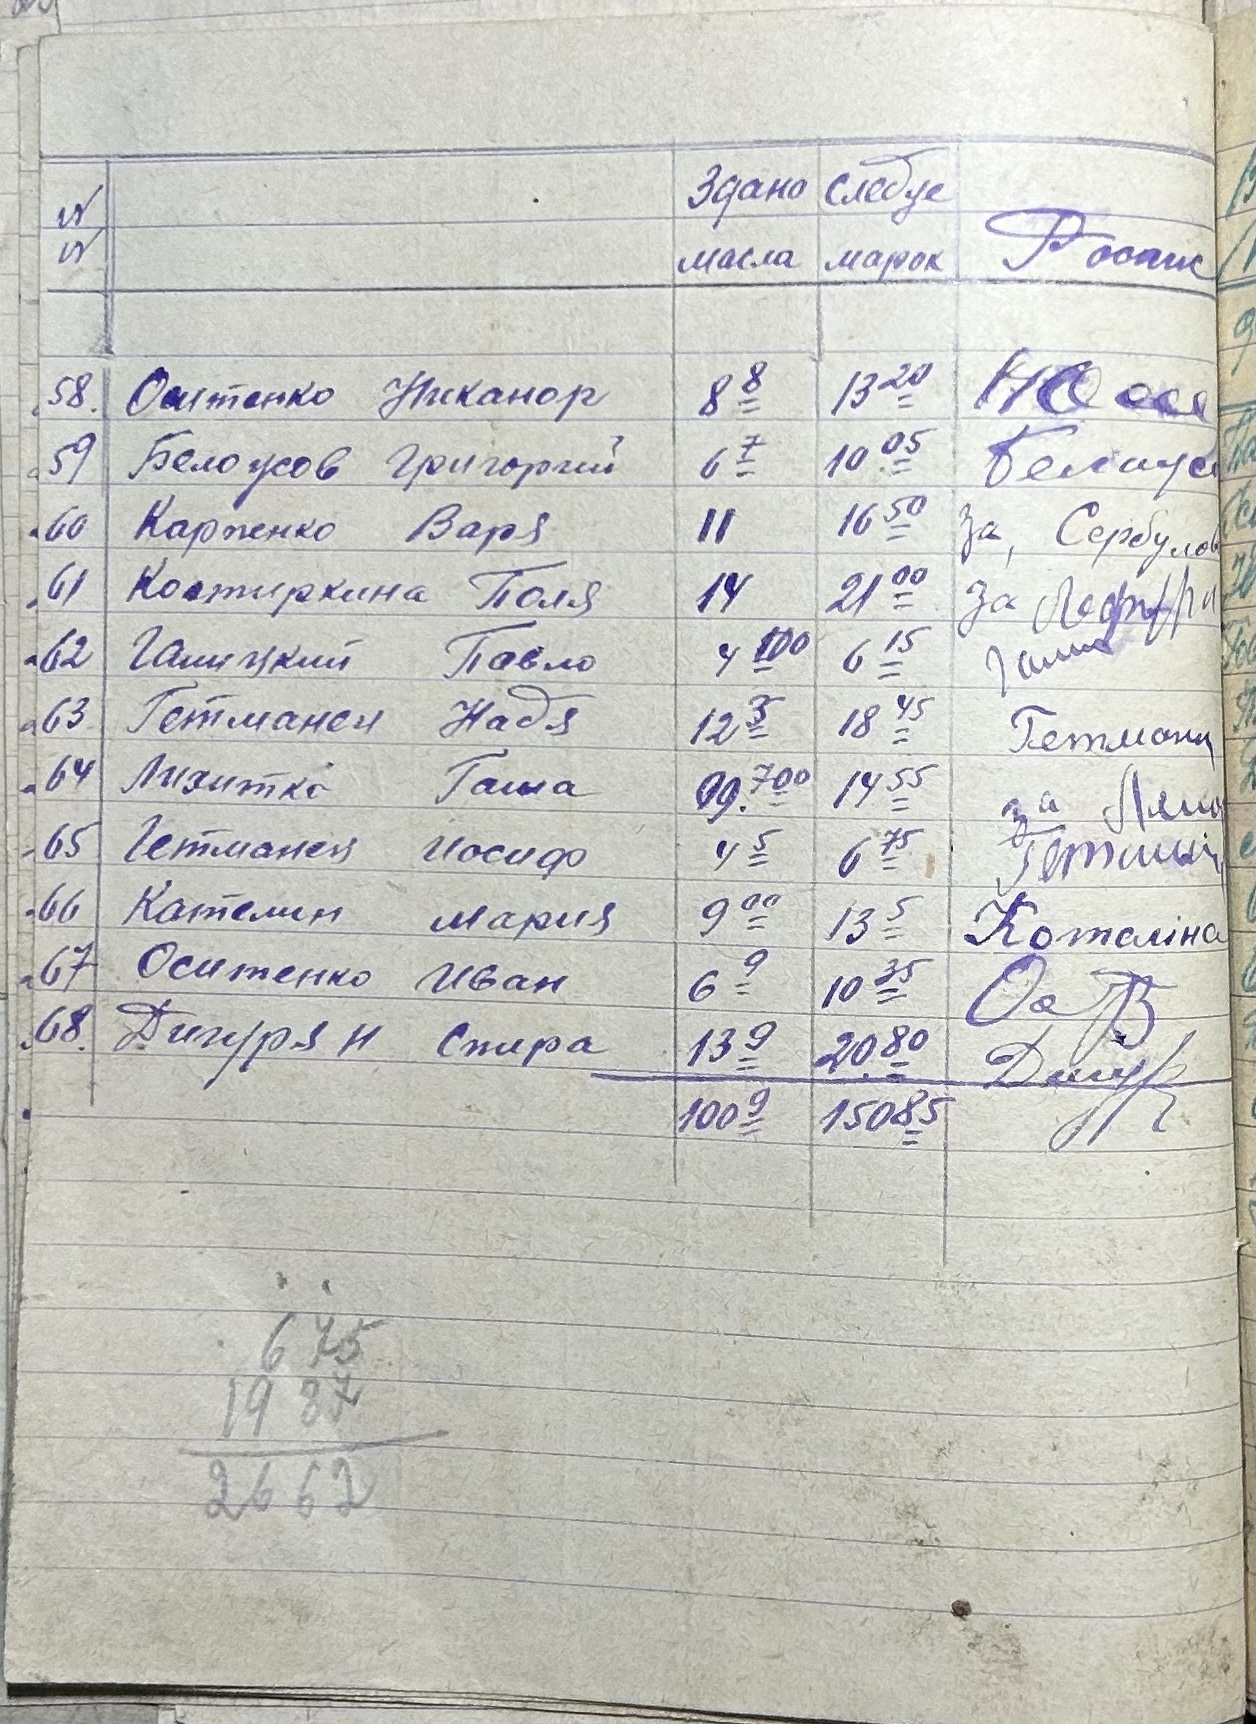 № Здано Следуе
№ масла марок Роспис
58. Оситенко Никанор 8 8 13 20 НОоси
59 Белоусов Григорий 6 7 10.05 Белоусо
60 Карпенко Варя 11 16 50 За, Сербулов
61 Костиркина Поля 14 21 00 За
62 Галицкий Павло 4 100 6 15 Гали
63 Гетманец Надя 12 3 18 45 Гетманц
64 Лизитко Гаша 99.700 14 55 за Ляш
65 Гетманец Иосиф 4 5 6 75 Гетманц
66 Кателин мария 9 00 13 5 Котеліна
67 Оситенко Иван 6 9 10 35 Ос
68. Дигурян Спира 13 9 20.80 Дигур
100 9 150 85
6 75
19 87
26 62